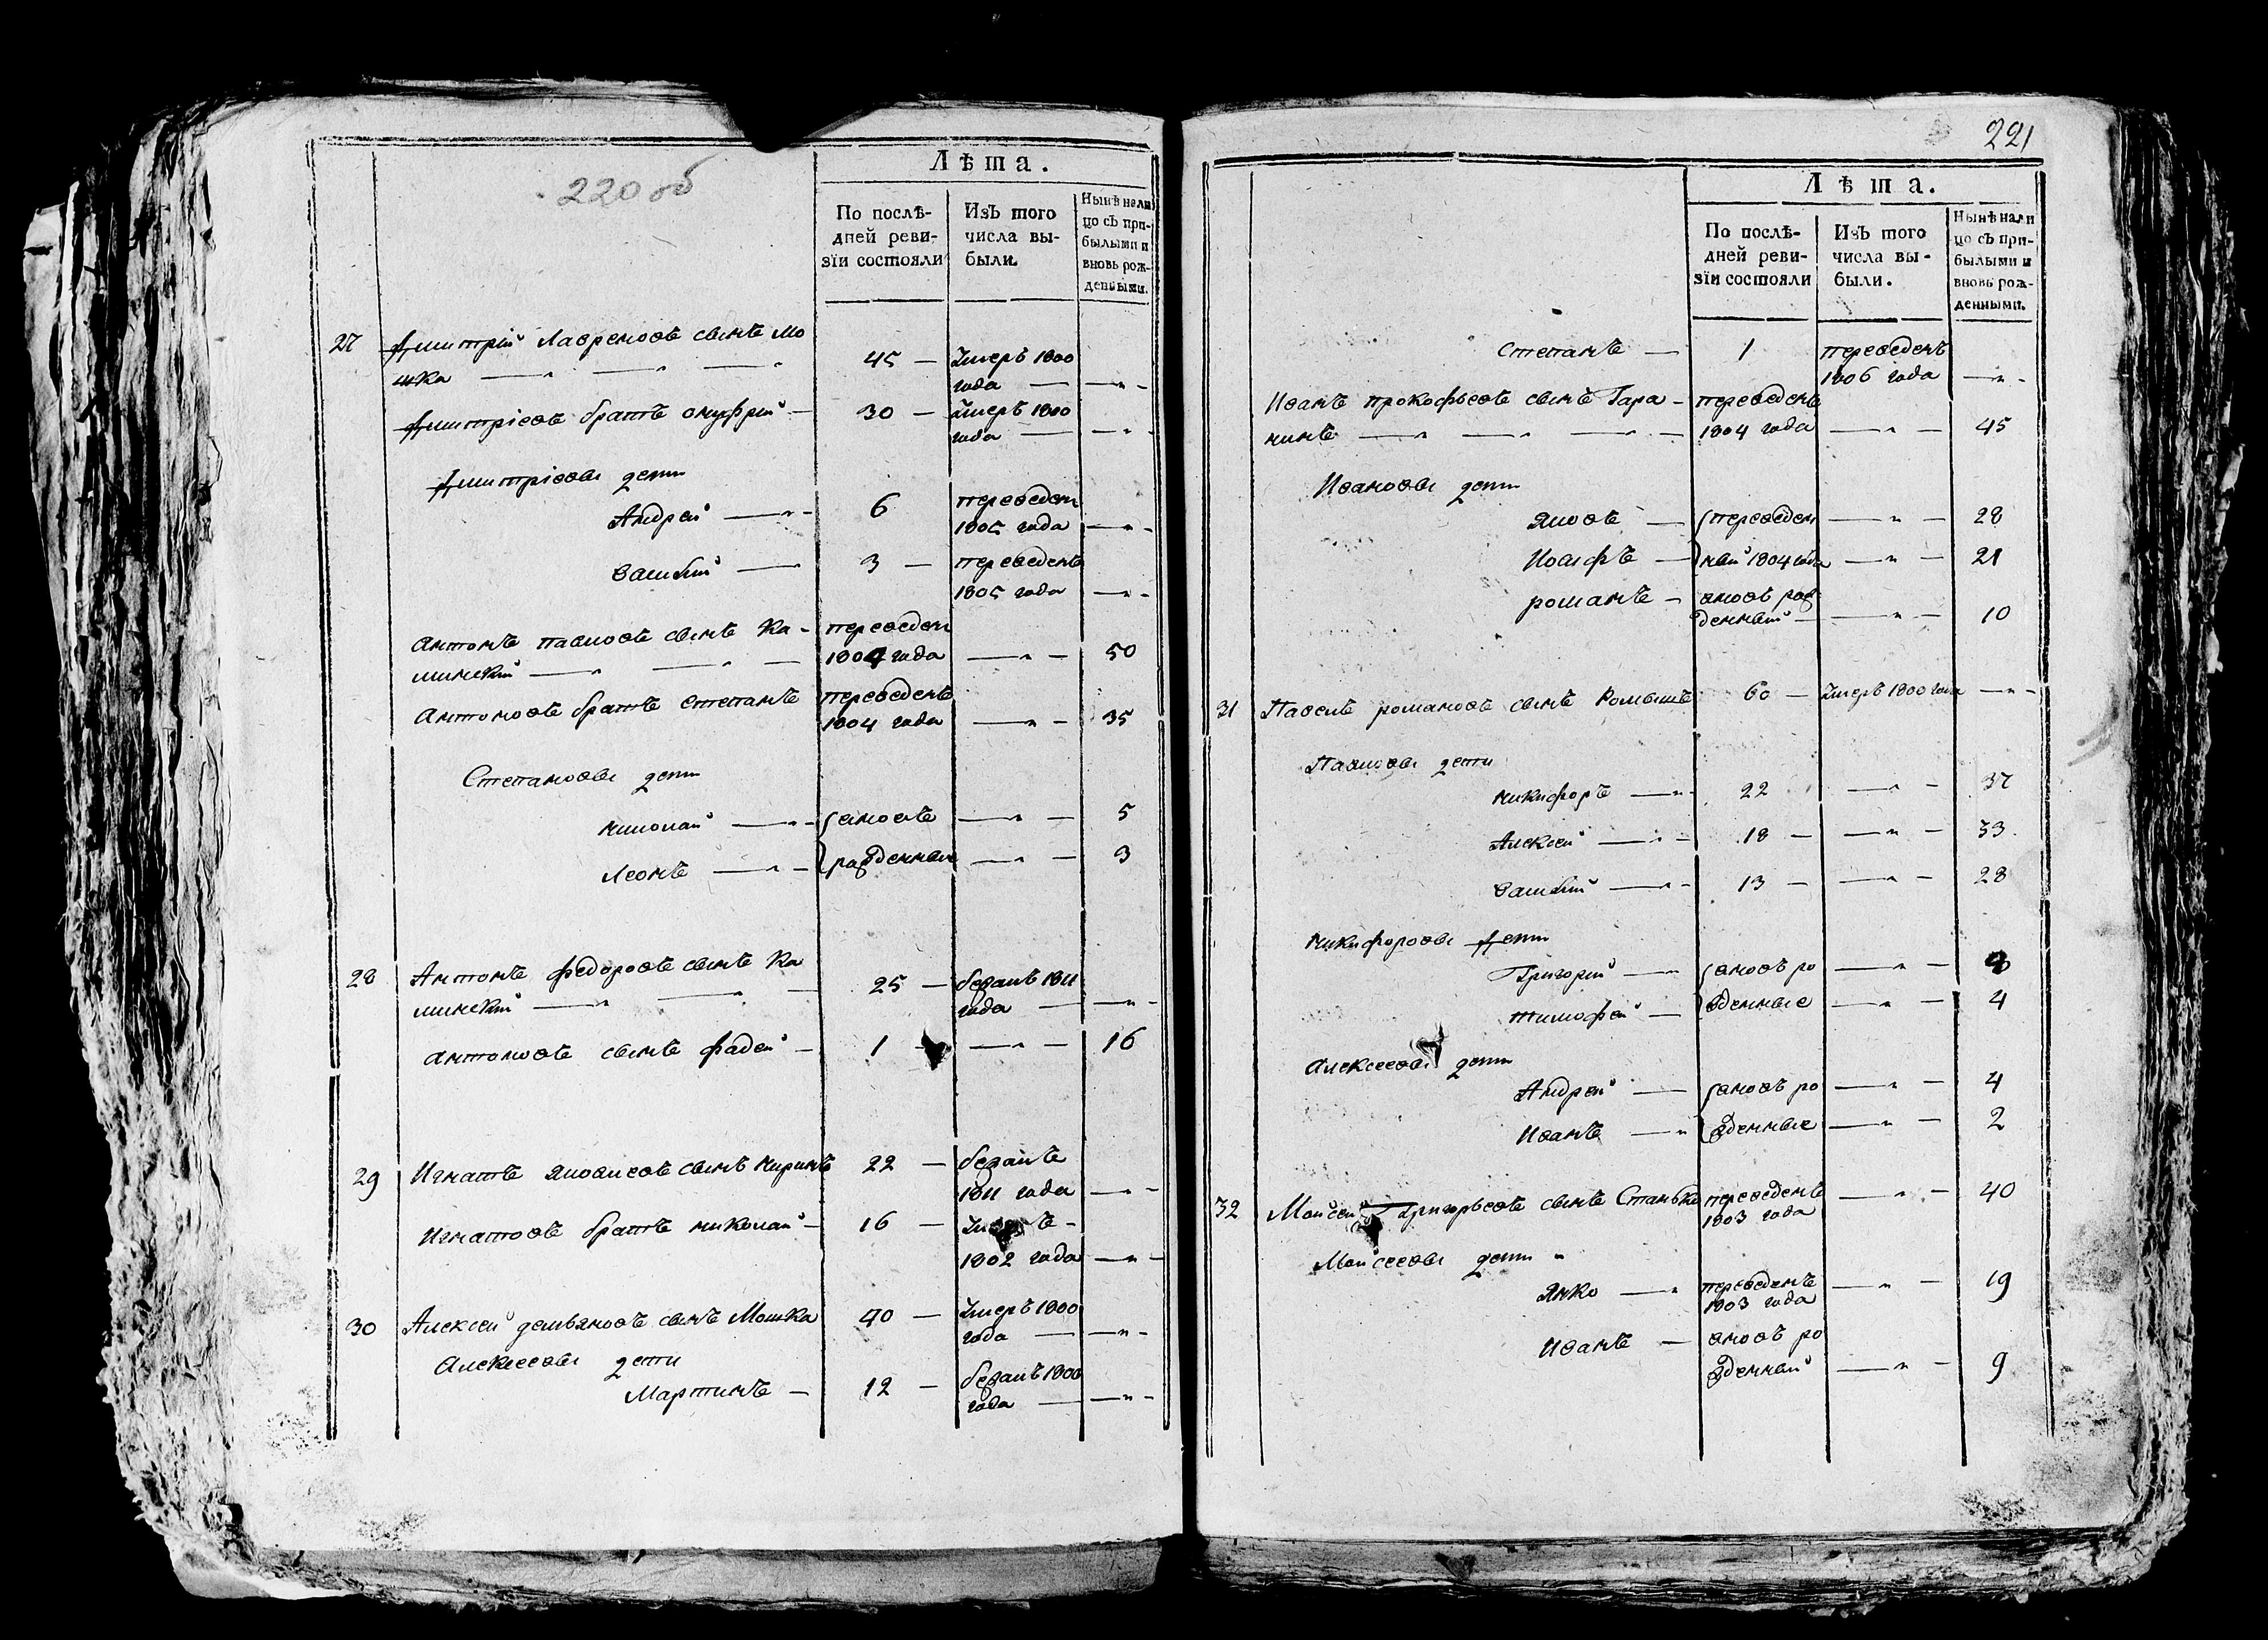 220 об
Лѣта.
По послѣ-
дней реви-
зїи состояли
Изъ того
числа вы-
были.
Нынѣ нали
цо съ при-
былыми и
вновь рож-
денными.
27 Дмитрій Лавреновъ сынъ Мо
шка 45 — Умеръ 1800
года — —〃—
Дмитріевъ братъ онуфрій — 30 — Умеръ 1800
года — —〃—
Дмитріевы дети
Андрей —〃— 6 переведен
1805 года —〃—
Василий — 3 — переведенъ
1805 года —〃—
Антонъ павловъ сынъ Ка- переведен
минский —〃— 1804 года —〃— 50
Антоновъ братъ степанъ переведенъ
1804 года —〃— 35
Степановы дети
николай —〃— вновъ —〃— 5
Леонъ —〃— рожденные —〃— 3
28 Антонъ федоровъ сынъ Ка
минский —〃— 25 — бежалъ 1811
года — —〃—
антоновъ сынъ фадей — 1 — —〃— 16
29 Игнатъ сынъ 22 — бежалъ
1811 года —〃—
Игнатовъ братъ николай — 16 —
1802 года —〃—
30 Алексей демьяновъ сынъ Мошка 40 — Умеръ 1800
года — —〃—
Алексеевы дети
Мартинъ — 12 — бежалъ 1800
года — —〃—
221
Лѣта.
По послѣ-
дней реви-
зїи состояли
Изъ того
числа вы-
были.
Нынѣ нали
цо съ при-
былыми и
вновь рож-
денными.
Степанъ — 1 переведенъ
1806 года —〃—
Иванъ прокофьевъ сынъ Гара- переведенъ
нинъ —〃— 1804 года —〃— 45
Ивановы дети
Яковъ — переведен —〃— 28
Иосифъ — ный 1804 года —〃— 21
романъ — вновъ рож
денный —〃— 10
31 Павелъ романовъ сынъ 60 — Умеръ 1800 года —〃—
Павловы дети
никифоръ —〃— 22 —〃— 37
Алексей —〃— 18 — —〃— 33
Василий —〃— 13 — —〃— 28
никифоровы дети
Григорий — вновъ ро —〃—
тимофей — жденные —〃— 4
Алексеевы дети
Андрей — вновъ ро —〃— 4
Иванъ —〃 жденные —〃— 2
32 Моисей Григорьевъ сынъ Станько переведенъ —〃— 40
1803 года
Моисеевы дети
Янко —〃 переведенъ —〃— 19
1803 года
Иванъ — вновъ ро
жденный —〃— 9